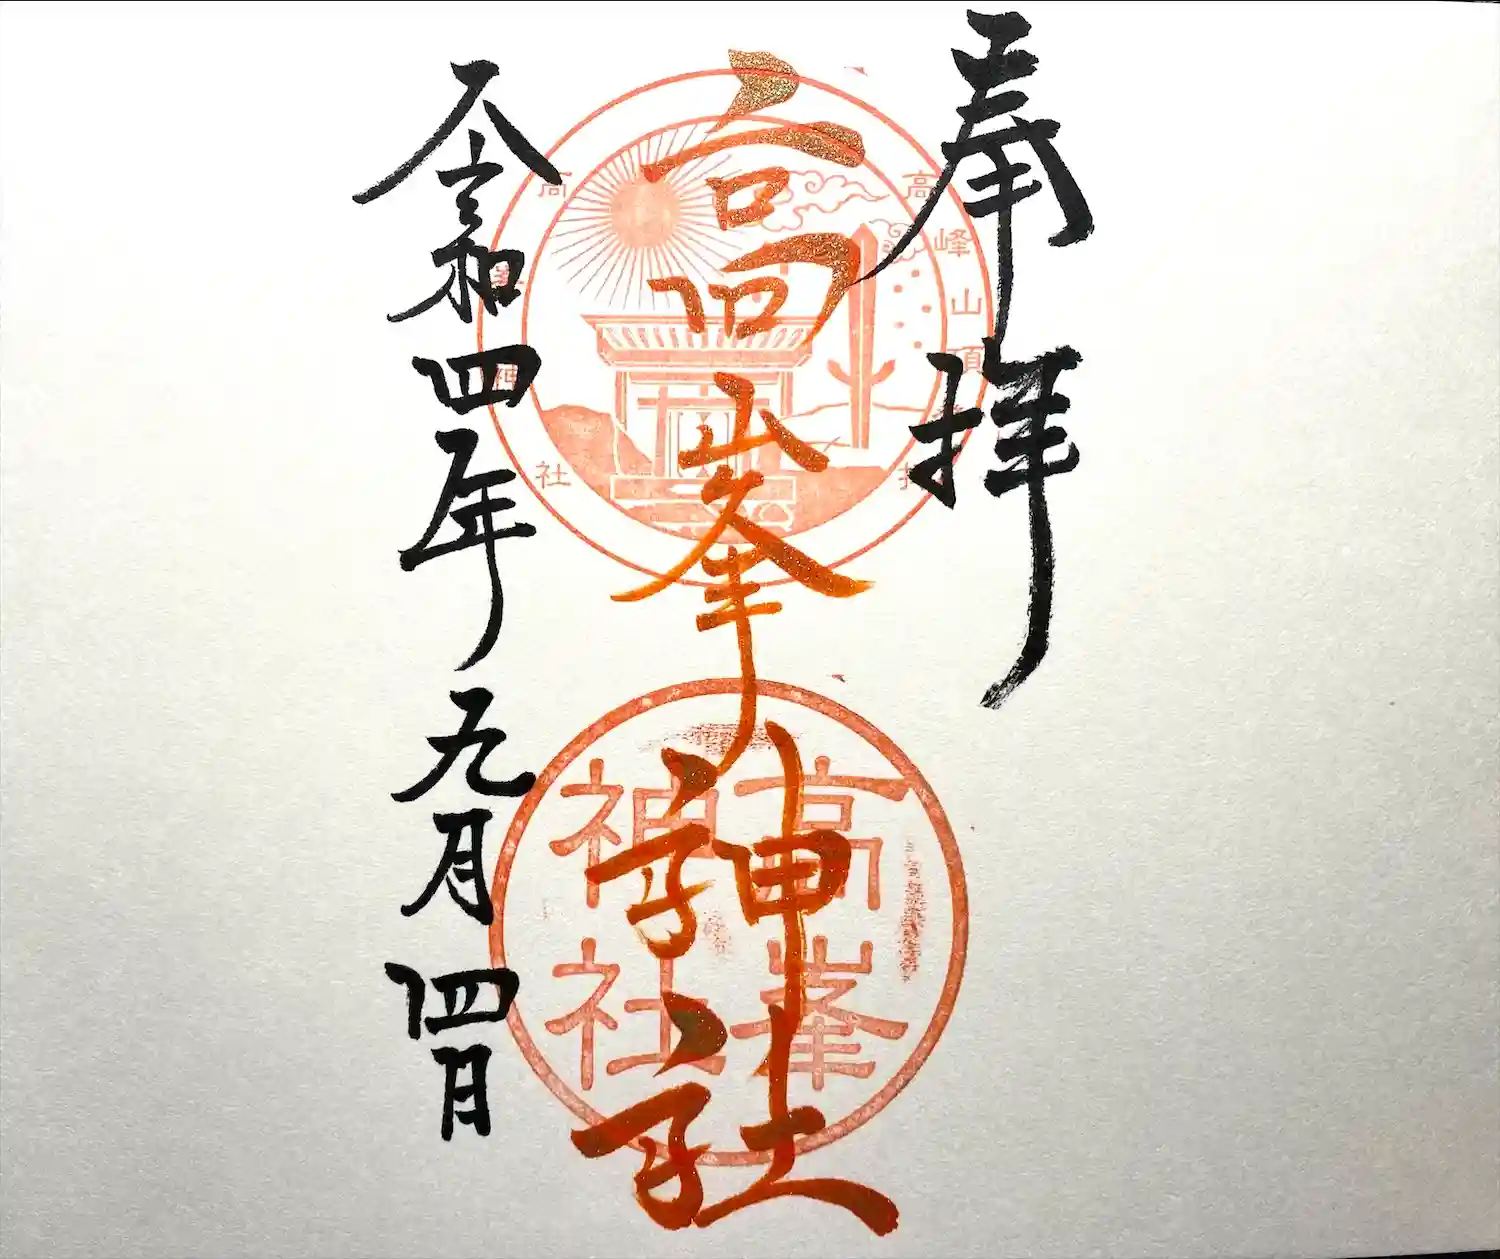 奉拝
高峯神社
令和四年九月四日
高峰山頂
高
社
高峯
神社